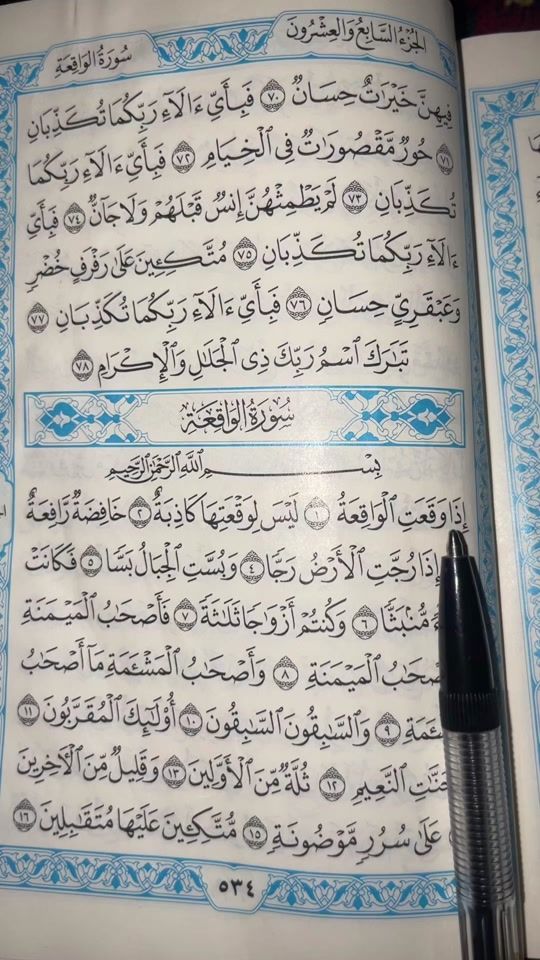 سُورَةُ الوَاقِعَةِ
الجُزْءُ السَّابِعُ وَالعِشْرُونَ
فِيهِنَّ خَيْرَٰتٌ حِسَانٌ ﴿٧٠﴾ فَبِأَيِّ ءَالَآءِ رَبِّكُمَا تُكَذِّبَانِ
﴿٧١﴾ حُورٌ مَّقْصُورَٰتٌ فِى ٱلْخِيَامِ ﴿٧٢﴾ فَبِأَيِّ ءَالَآءِ رَبِّكُمَا
تُكَذِّبَانِ ﴿٧٣﴾ لَمْ يَطْمِثْهُنَّ إِنسٌ قَبْلَهُمْ وَلَا جَآنٌّ ﴿٧٤﴾ فَبِأَيِّ
ءَالَآءِ رَبِّكُمَا تُكَذِّبَانِ ﴿٧٥﴾ مُتَّكِـِٔينَ عَلَىٰ رَفْرَفٍ خُضْرٍ
وَعَبْقَرِيٍّ حِسَانٍ ﴿٧٦﴾ فَبِأَيِّ ءَالَآءِ رَبِّكُمَا تُكَذِّبَانِ ﴿٧٧﴾
تَبَٰرَكَ ٱسْمُ رَبِّكَ ذِى ٱلْجَلَٰلِ وَٱلْإِكْرَامِ ﴿٧٨﴾
سُورَةُ الوَاقِعَةِ
بِسْمِ ٱللَّهِ ٱلرَّحْمَٰنِ ٱلرَّحِيمِ
إِذَا وَقَعَتِ ٱلْوَاقِعَةُ ﴿١﴾ لَيْسَ لِوَقْعَتِهَا كَاذِبَةٌ ﴿٢﴾ خَافِضَةٌ رَّافِعَةٌ
إِذَا رُجَّتِ ٱلْأَرْضُ رَجًّا ﴿٤﴾ وَبُسَّتِ ٱلْجِبَالُ بَسًّا ﴿٥﴾ فَكَانَتْ
مُّنۢبَثًّا ﴿٦﴾ وَكُنتُمْ أَزْوَٰجًا ثَلَٰثَةً ﴿٧﴾ فَأَصْحَٰبُ ٱلْمَيْمَنَةِ
ٱلْمَيْمَنَةِ ﴿٨﴾ وَأَصْحَٰبُ ٱلْمَشْـَٔمَةِ مَآ أَصْحَٰبُ
﴿٩﴾ وَٱلسَّٰبِقُونَ ٱلسَّٰبِقُونَ ﴿١٠﴾ أُوْلَٰٓئِكَ ٱلْمُقَرَّبُونَ ﴿١١﴾
ٱلنَّعِيمِ ﴿١٢﴾ ثُلَّةٌ مِّنَ ٱلْأَوَّلِينَ ﴿١٣﴾ وَقَلِيلٌ مِّنَ ٱلْءَاخِرِينَ
عَلَىٰ سُرُرٍ مَّوْضُونَةٍ ﴿١٥﴾ مُّتَّكِـِٔينَ عَلَيْهَا مُتَقَٰبِلِينَ ﴿١٦﴾
٥٣٤